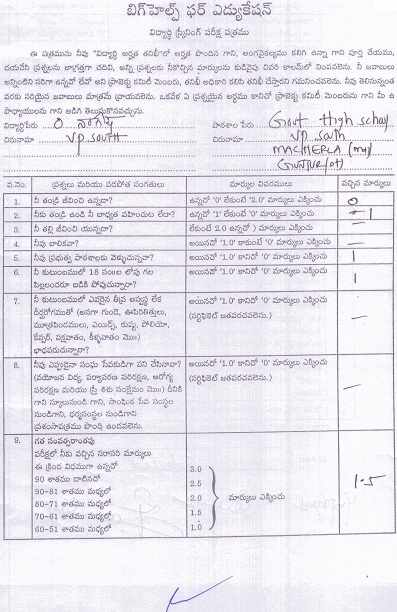 బిగ్‌హెల్ప్ ఫర్ ఎడ్యుకేషన్
విద్యార్థి స్క్రీనింగ్ పరీక్ష పత్రము
ఈ పత్రమును నీవు "విద్యార్థి అర్హత తనిఖీ"లో అర్హత పొందిన గాని, అంగవైకల్యము కలిగి ఉన్నా గాని పూర్తి చేయుము,
దయచేసి ప్రశ్నలను జాగ్రత్తగా చదివి, అన్ని ప్రశ్నలకు నీకొచ్చిన మార్కులను కుడివైపు చివర కాలమ్‌లో నింపవలెను. నీ జవాబులు
అన్నింటిని సరిగా ఉన్నవో లేవో అని ప్రాజెక్టు కమిటీ మెంబరు, తనిఖీ అధికారి కలిసి తనిఖీ చేస్తారని గమనించవలెను. నీవు తెలిసినన్నంత
వరకు సరియైన జవాబులు మాత్రమే వ్రాయవలెను. ఒకవేళ ఏ ప్రశ్నయైన అర్థము కానిచో ప్రాజెక్టు కమిటీ మెంబరును గాని మీ ఉ
పాధ్యాయులను గాని అడిగి తెలుసుకొనవచ్చును.
విద్యార్థిపేరు పాఠశాల పేరు Govt High school
చిరునామా VP south చిరునామా VP south
MACHERLA (md)
GUNTUR (dt)
వ.నెం. ప్రశ్నలు మరియు పదపోత సంగతులు మార్కుల వివరములు వచ్చిన మార్కులు
1. నీ తండ్రి జీవించి ఉన్నడా? ఉన్నచో '0' లేకుంటే '2.0' మార్కులు ఎక్కించు 0
2. నీకు తండ్రి ఉండి నీ బాధ్యత వహించుట లేదా? ఉన్నచో '1' లేకుంటే '0' మార్కులు ఎక్కించు - 1
3. నీ తల్లి జీవించి యున్నదా? లేకుంటే 2.0 ఉన్నచో ) మార్కులు ఎక్కించు —
4. నీవు బాలికవా? అయినచో '1.0' కాకుంటే '0' మార్కులు ఎక్కించు —
5. నీవు ప్రభుత్వ పాఠశాలకు వెళ్ళుచున్నవా? అయినచో '1.0' కానిచో '0' మార్కులు ఎక్కించు 1
6. నీ కుటుంబములో 18 సం॥ల లోపు గల అయినచో '1.0' కానిచో '0' మార్కులు ఎక్కించు 1
పిల్లలందరూ బడికి పోవుచున్నారా?
7. నీ కుటుంబములో ఎవరైన తీవ్ర అస్వస్థ లేక అయినచో '1.0' కానిచో '0' మార్కులు ఎక్కించు —
దీర్ఘరోగముతో (అనగా గుండె, ఊపిరితిత్తులు, (సర్టిఫికెట్ జతపరచవలెను.)
మూత్రపిండములు, ఎయిడ్స్, కుష్ఠు, పోలియో,
కేన్సర్, పక్షవాతం, కీళ్ళవాతం మొ॥)
బాధపడుచున్నారా?
8. నీవు ఎప్పుడైనా సంఘ సేవకుడిగా పని చేసినావా? అయినచో '1.0' కానిచో '0' మార్కులు ఎక్కించు —
(వయోజన విద్య, పర్యావరణ పరిరక్షణ, ఆరోగ్య (సర్టిఫికెట్ జతపరచవలెను.)
పరిరక్షణ మరియు స్త్రీ శిశు సంక్షేమం మొ॥) దీనికి
గాని స్కూలునుండి గాని, సాంఘిక సేవ సంస్థల
నుండిగాని, ధర్మసంస్థల నుండిగాని
ప్రశంసాపత్రము పొంది ఉండవలెను.
9. గత సంవత్సరాంతపు
పరీక్షలో నీకు వచ్చిన సరాసరి మార్కులు
ఈ క్రింద విధముగా ఉన్నచో 3.0
90 శాతము దాటినచో 2.5
90-81 శాతము మధ్యలో 2.0 మార్కులు ఎక్కించు 1.5
80-71 శాతము మధ్యలో 1.5
70-61 శాతము మధ్యలో 1.0
60-51 శాతము మధ్యలో